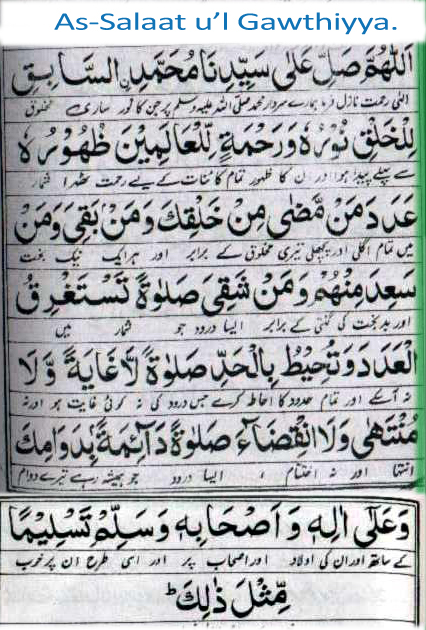 As-Salaat u'l Gawthiyya.
اَللّٰهُمَّ صَلِّ عَلٰى سَيِّدِنَا مُحَمَّدِ ۨالسَّابِقِ
الٰہی رحمت نازل فرما ہمارے سردار محمد صلی اللہ علیہ وسلم پر جن کا نور ساری مخلوق
لِلْخَلْقِ نُوْرُهٗ وَرَحْمَةٌ لِّلْعَالَمِيْنَ ظُهُوْرُهٗ
سے پہلے پیدا ہوا اور ان کا ظہور تمام کائنات کے لیے رحمت ٹھہرا شمار
عَدَدَ مَنْ مَّضٰى مِنْ خَلْقِكَ وَمَنْۢ بَقِيَ وَمَنْ
میں تمام اگلی اور پچھلی تیری مخلوق کے برابر اور ہر ایک نیک بخت
سَعِدَ مِنْهُمْ وَمَنْ شَقِيَ صَلٰوةً تَسْتَغْرِقُ
اور بد بخت کی گنتی کے برابر ایسا درود جو شمار میں
الْعَدَدَ وَتُحِيْطُ بِالْحَدِّ صَلٰوةً لَّا غَايَةَ وَلَا
نہ آسکے اور تمام حدود کا احاطہ کرے جس درود کی نہ کوئی غایت ہو اور نہ
مُنْتَهٰى وَلَا انْقِضَاءَ صَلٰوةً دَآئِمَةً بِدَوَامِكَ
انتہا اور نہ اختتام ، ایسا درود جو ہمیشہ رہے تیرے دوام
وَعَلٰٓى اٰلِهٖ وَاَصْحَابِهٖ وَسَلِّمْ تَسْلِيْمًا
کے ساتھ اور ان کی اولاد اور اصحاب پر اور اسی طرح ان پر خوب
مِّثْلَ ذٰلِكَ ؕ